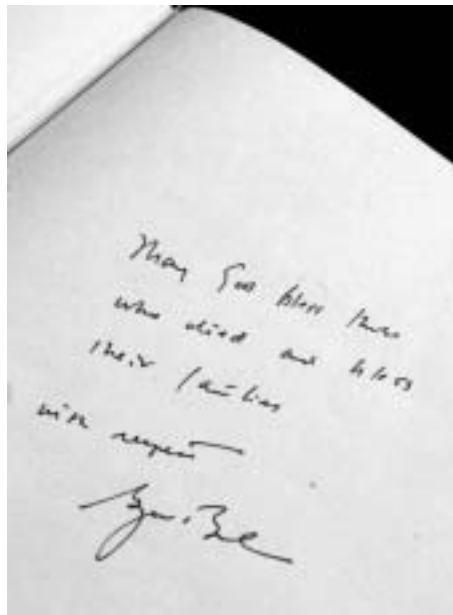 May God bless those
who died and bless
their families
with respect